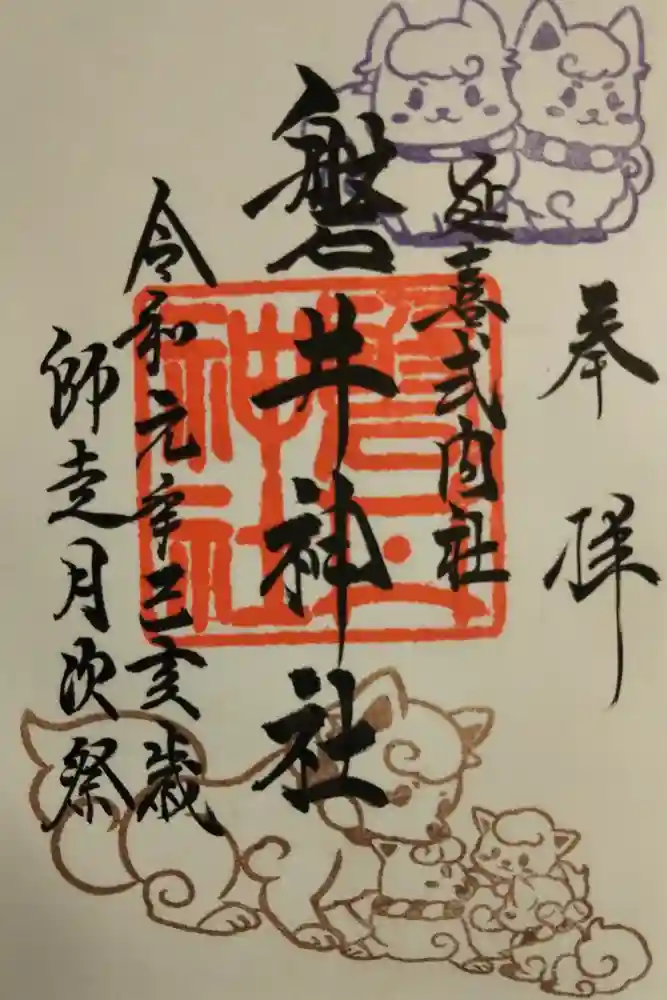 奉拝
延喜式内社
磐井神社
令和元年己亥歳
師走月次祭